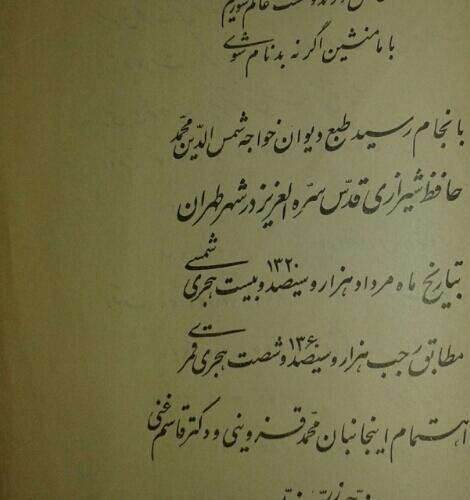 با ما منشین اگر نه بدنام شوی
بانجام رسید طبع دیوان خواجه شمس الدّین محمّد
حافظ شیرازی قدّس سرّه العزیز در شهر طهران
بتاریخ ماه مرداد هزار و سیصد و بیست ۱۳۲۰ هجری شمسی
مطابق رجب هزار و سیصد و شصت ۱۳۶۰ هجری قمری
اهتمام اینجانبان محمّد قزوینی و دکتر قاسم غنی